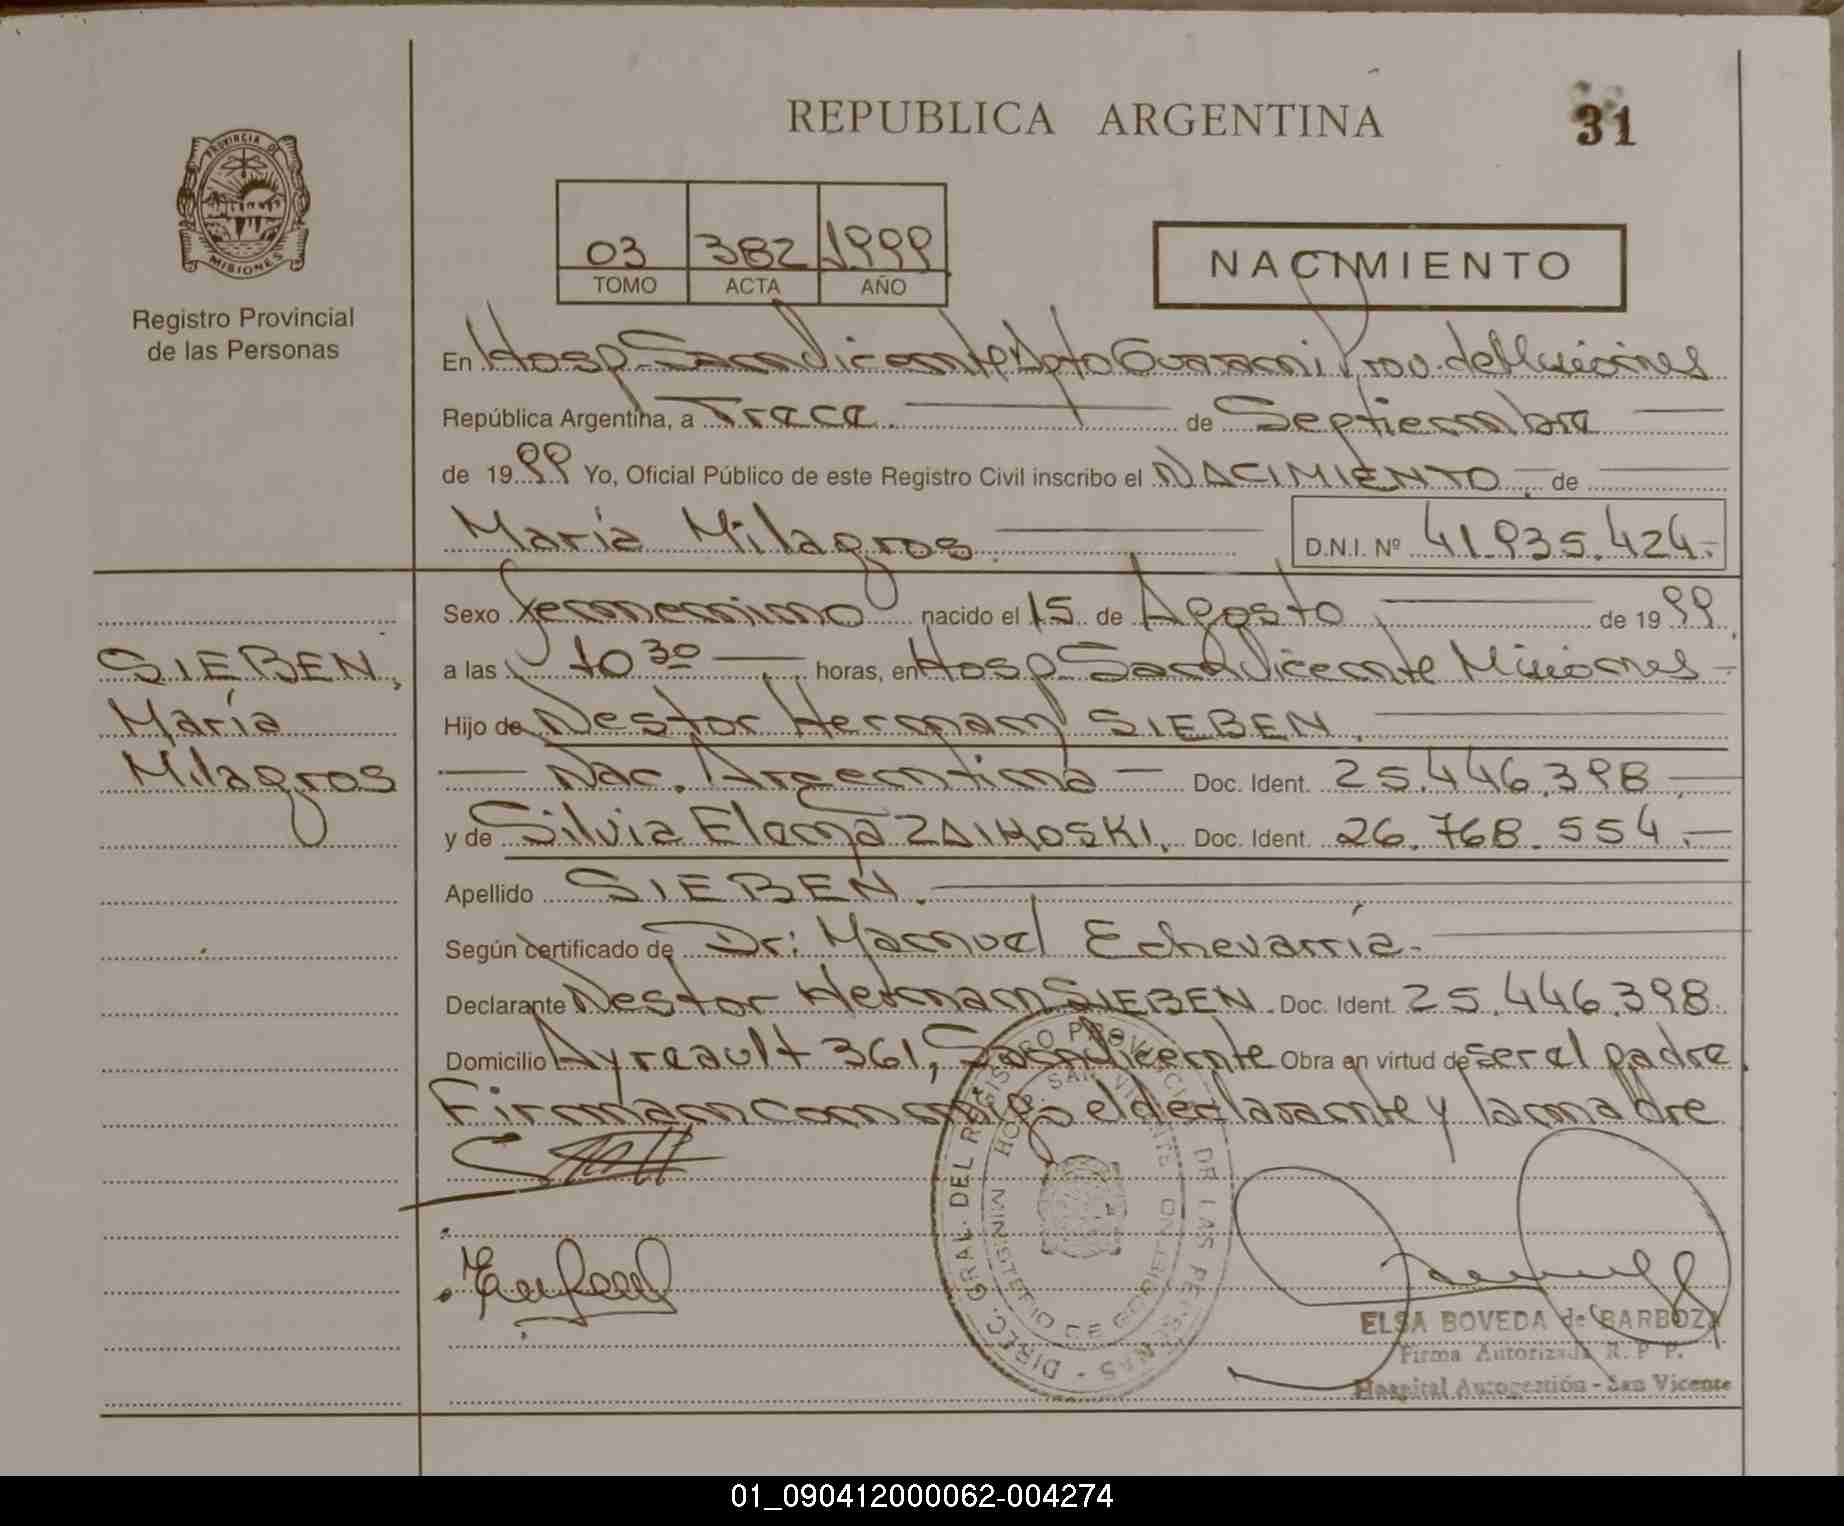 REPUBLICA ARGENTINA
31
PROVINCIA DE
MISIONES
Registro Provincial
de las Personas
03 382 1999
TOMO ACTA AÑO
NACIMIENTO
En Hosp. San Vicente Dpto Guarani Prov. de Misiones
República Argentina, a Trece. de Septiembre
de 1999 Yo, Oficial Público de este Registro Civil inscribo el NACIMIENTO. de
María Milagros D.N.I. Nº 41.935.424.-
Sexo femenino nacido el 15 de Agosto de 1999
a las 10 30 horas, en Hosp. San Vicente Misiones
Hijo de Nestor Hernan SIEBEN.
Nac. Argentina Doc. Ident. 25.446.398
y de Silvia Elena ZAIMOSKI. Doc. Ident. 26.768.554.
Apellido SIEBEN.
Según certificado de Dr: Manuel Echevarría.
Declarante Nestor Hernan SIEBEN. Doc. Ident. 25.446.398.
Domicilio Ayreault 361, San Vicente Obra en virtud de ser el padre.
Firman conmigo el declarante y la madre
SIEBEN,
María
Milagros
DIREC. GRAL. DEL REGISTRO PROVINCIAL DE LAS PERSONAS -
HOSP. SAN VICENTE
MINISTERIO DE GOBIERNO
ELSA BOVEDA de BARBOZA
Firma Autorizada R. P. P.
Hospital Autogestión - San Vicente
01_090412000062-004274